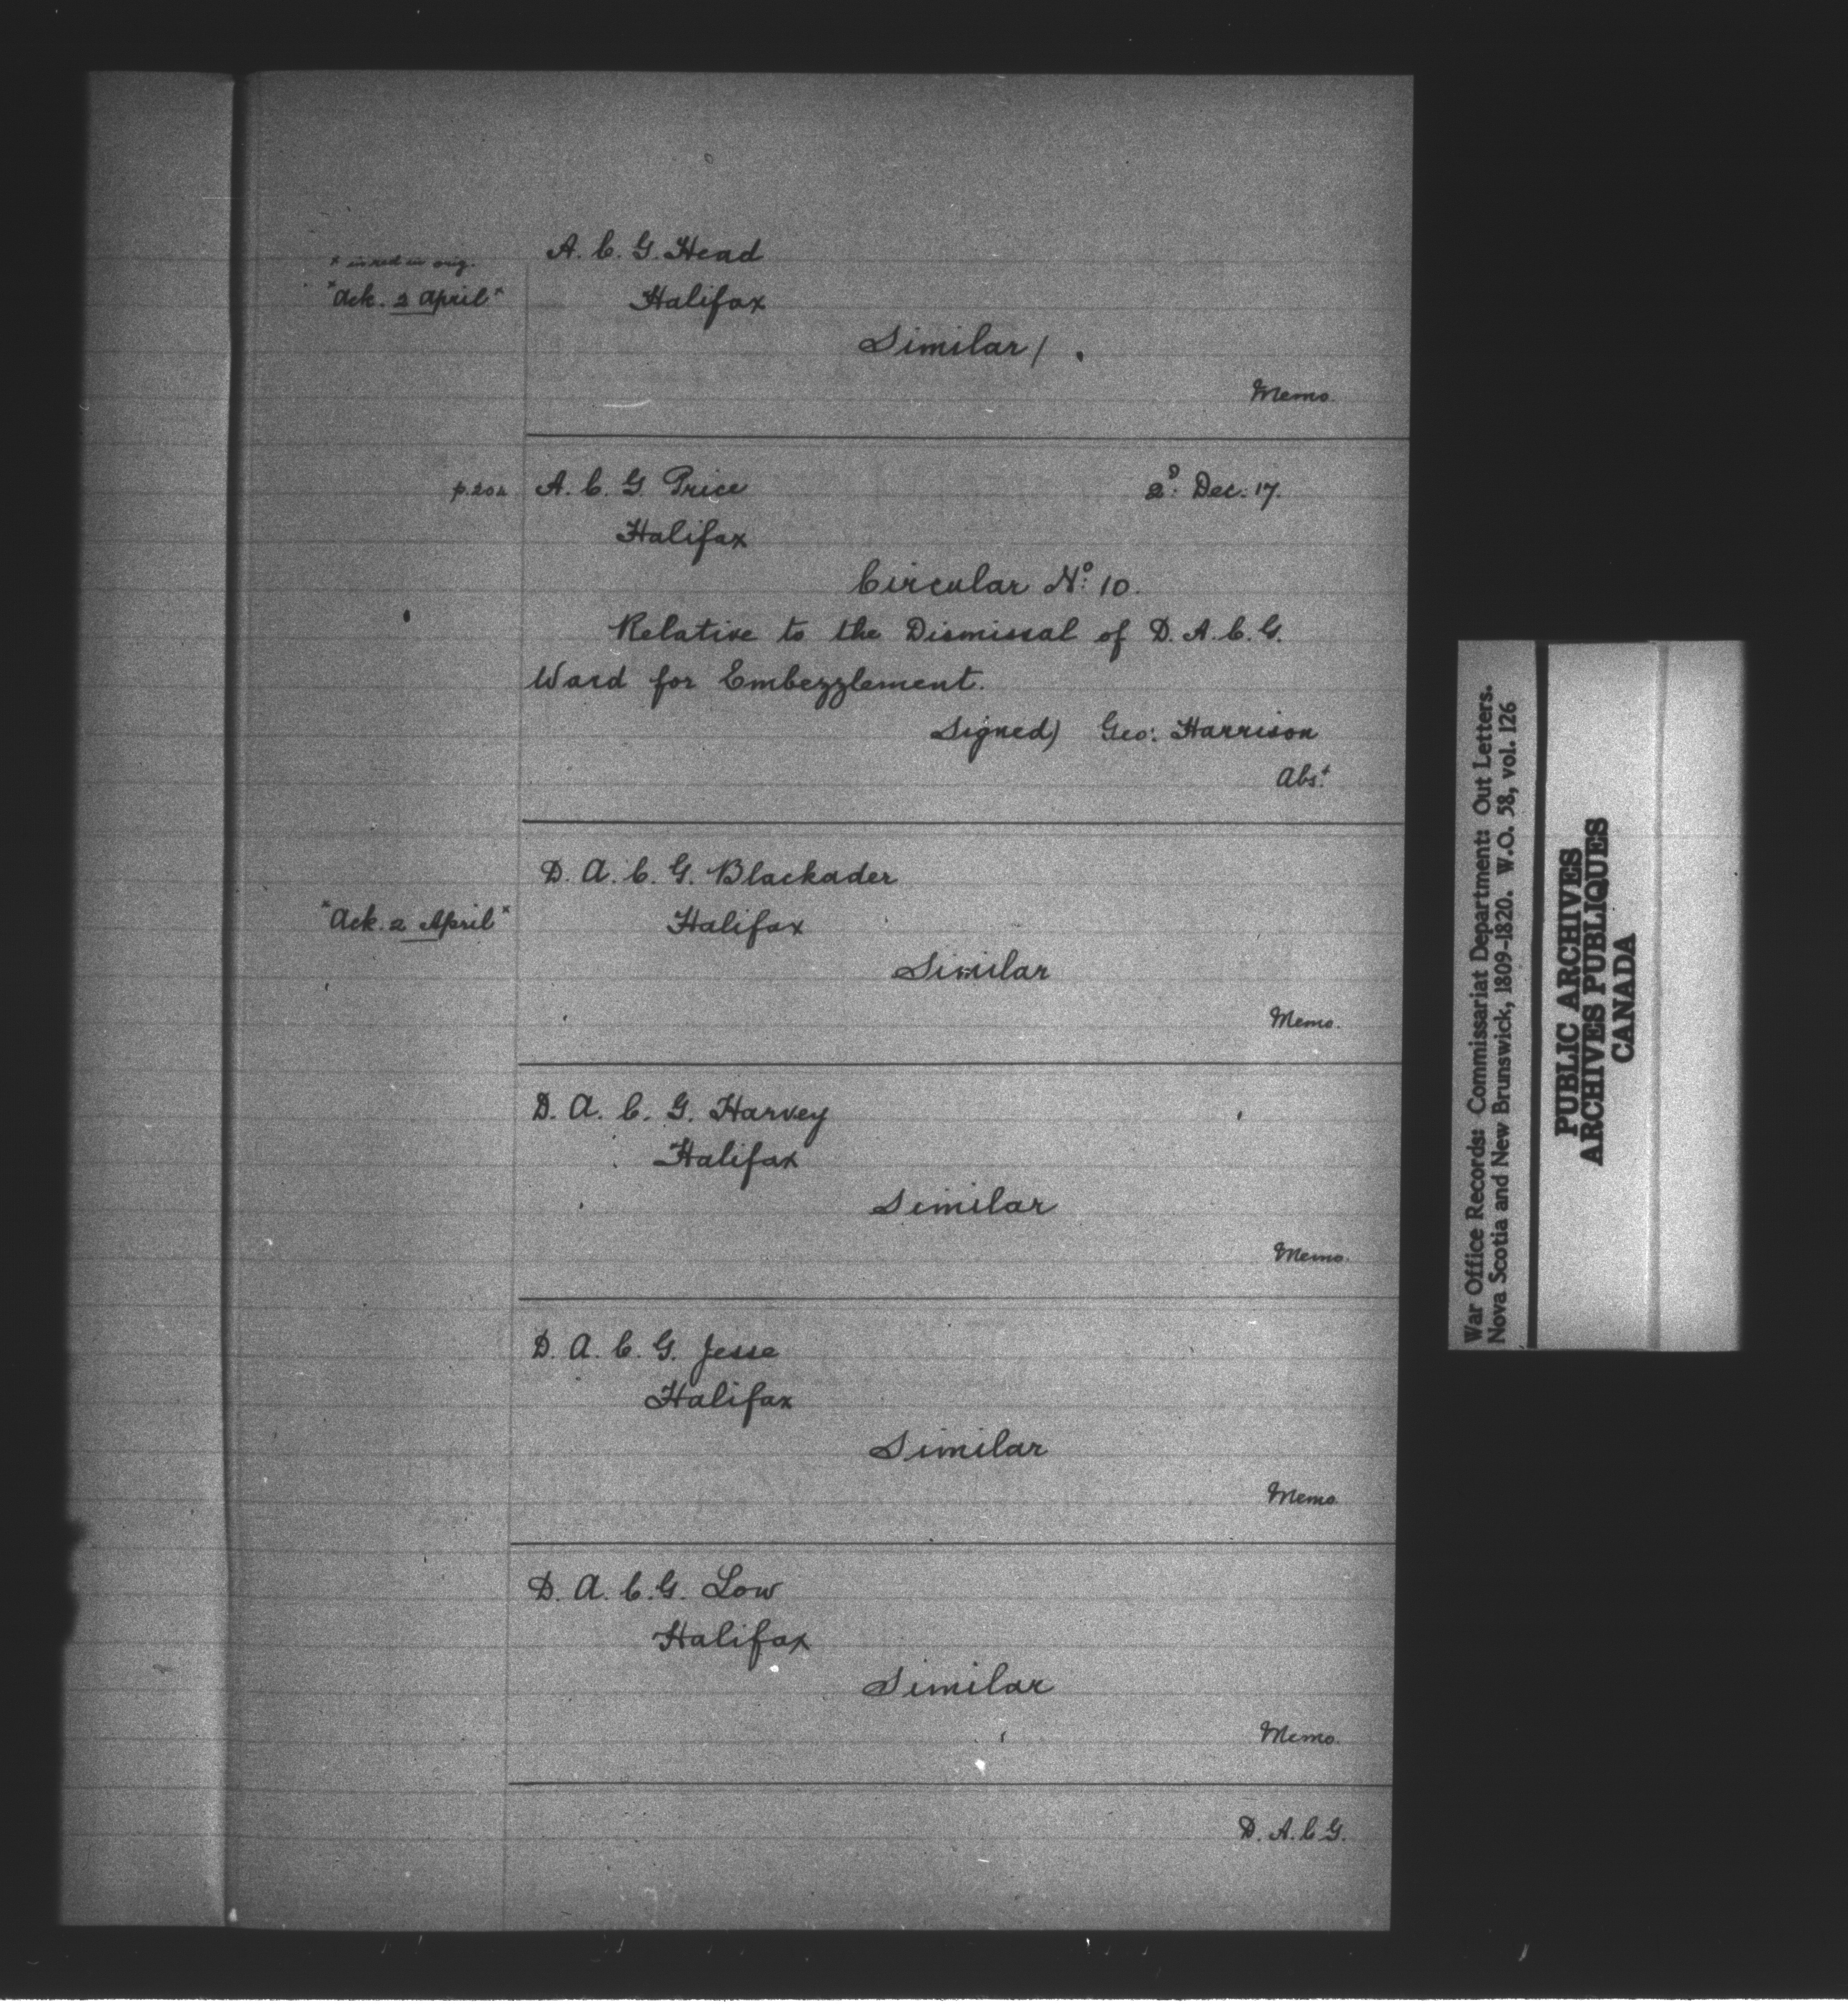 A. C. G. Head
* in red in orig.
*Ack. 2 April*
Halifax
Similar /.
Memo.
A. C. G. Price 2d. Dec: 17.
Halifax
Circular No: 10.
Relative to the Dismissal of D. A. C. G.
Ward for Embezzlement.
Signed) Geo: Harrison
Abst.
D. A. C. G. Blackader
*Ack. 2 April*
Halifax
Similar
Memo.
D. A. C. G. Harvey
Halifax
Similar
Memo.
D. A. C. G. Jesse
Halifax
Similar
Memo.
D. A. C. G. Low
Halifax
Similar
Memo.
D. A. C. G.
War Office Records: Commissariat Department: Out Letters.
Nova Scotia and New Brunswick, 1809-1820. W.O. 58, vol. 126
PUBLIC ARCHIVES
ARCHIVES PUBLIQUES
CANADA